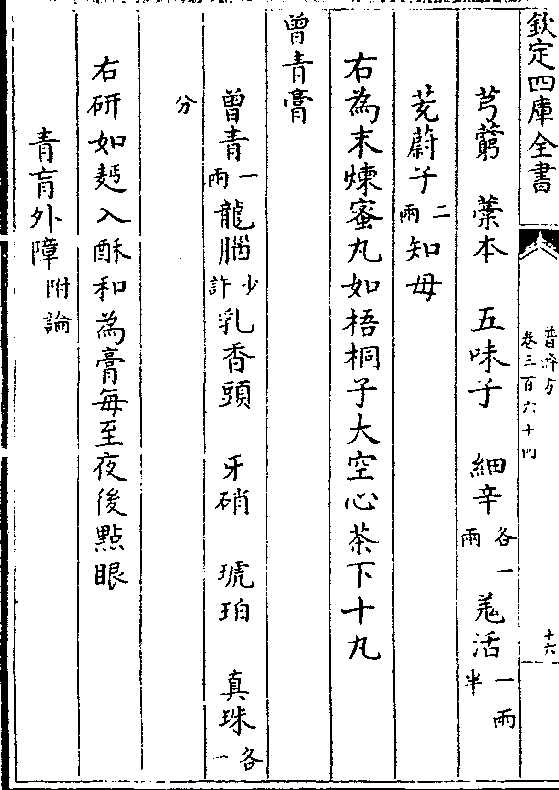 欽定四庫全書
普濟方
卷三百六十四
十六
芎藭 藁本 五味子 細辛各一兩 羗活一兩半
茺蔚子二兩 知母
右為末煉蜜丸如梧桐子大空心茶下十丸
曾青膏
曾青一兩 龍腦少許 乳香頭 牙硝 琥珀 真珠各一
分
右研如麫入酥和為膏每至夜後點眼
青盲外障附論